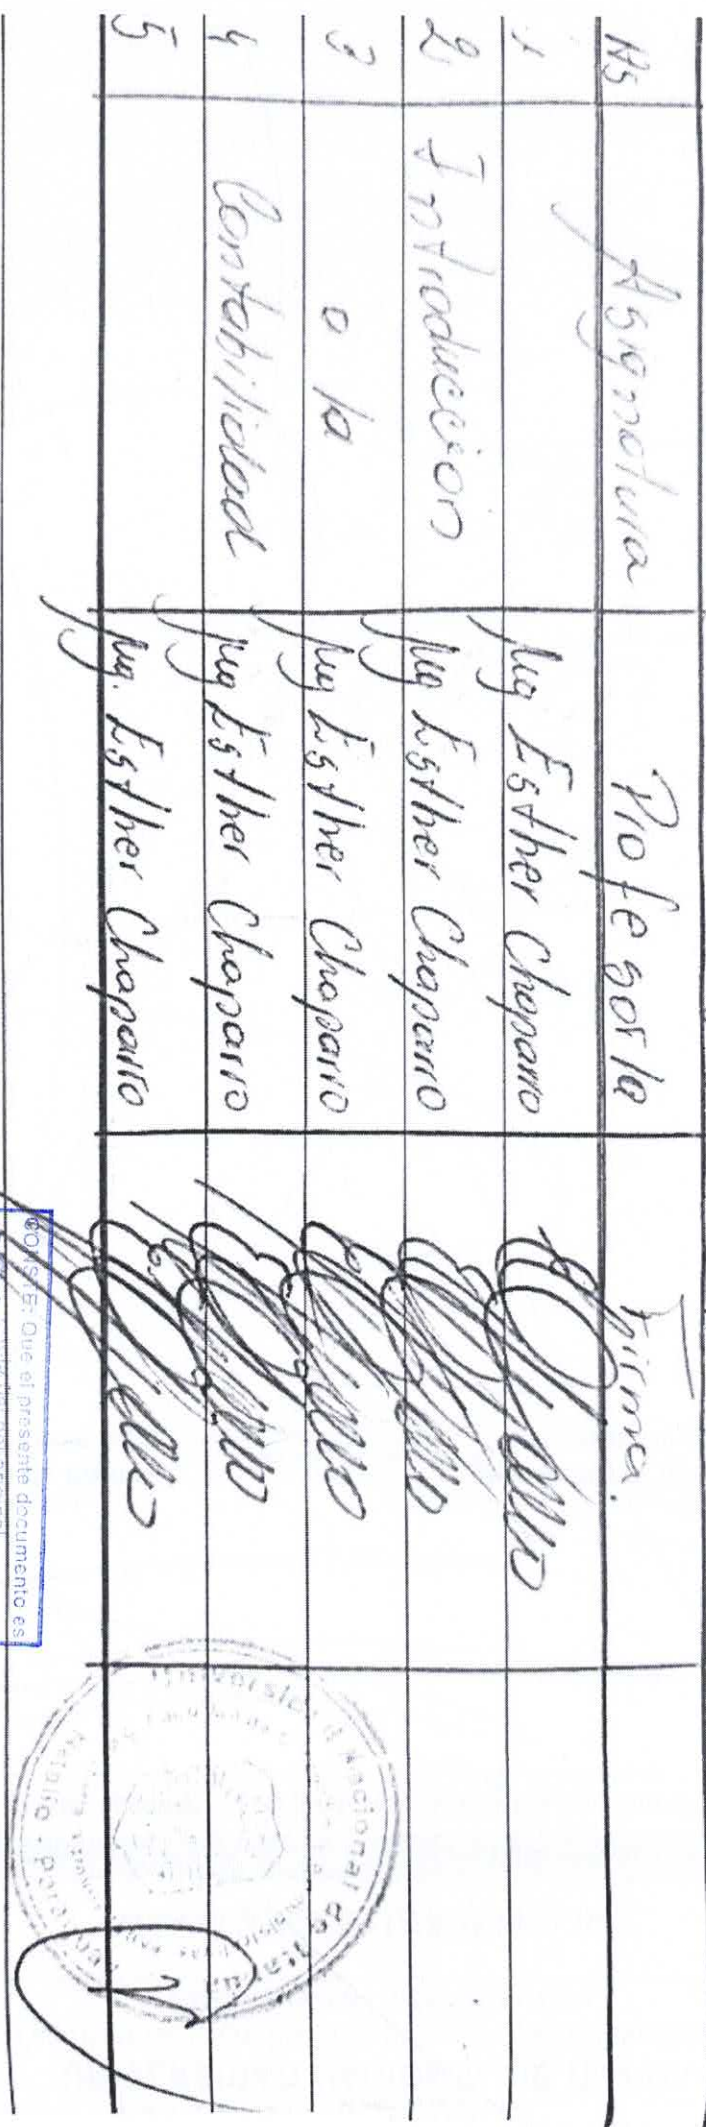 Hs Asignatura Profesor/a Firma.
1 Mg Esther Chaparro
2 Introduccion Mg Esther Chaparro
3 a la Mg Esther Chaparro
4 Contabilidad Mg Esther Chaparro
5 Mg. Esther Chaparro
CONSTE: Que el presente documento es
Universidad Nacional de Itapúa
Natalio